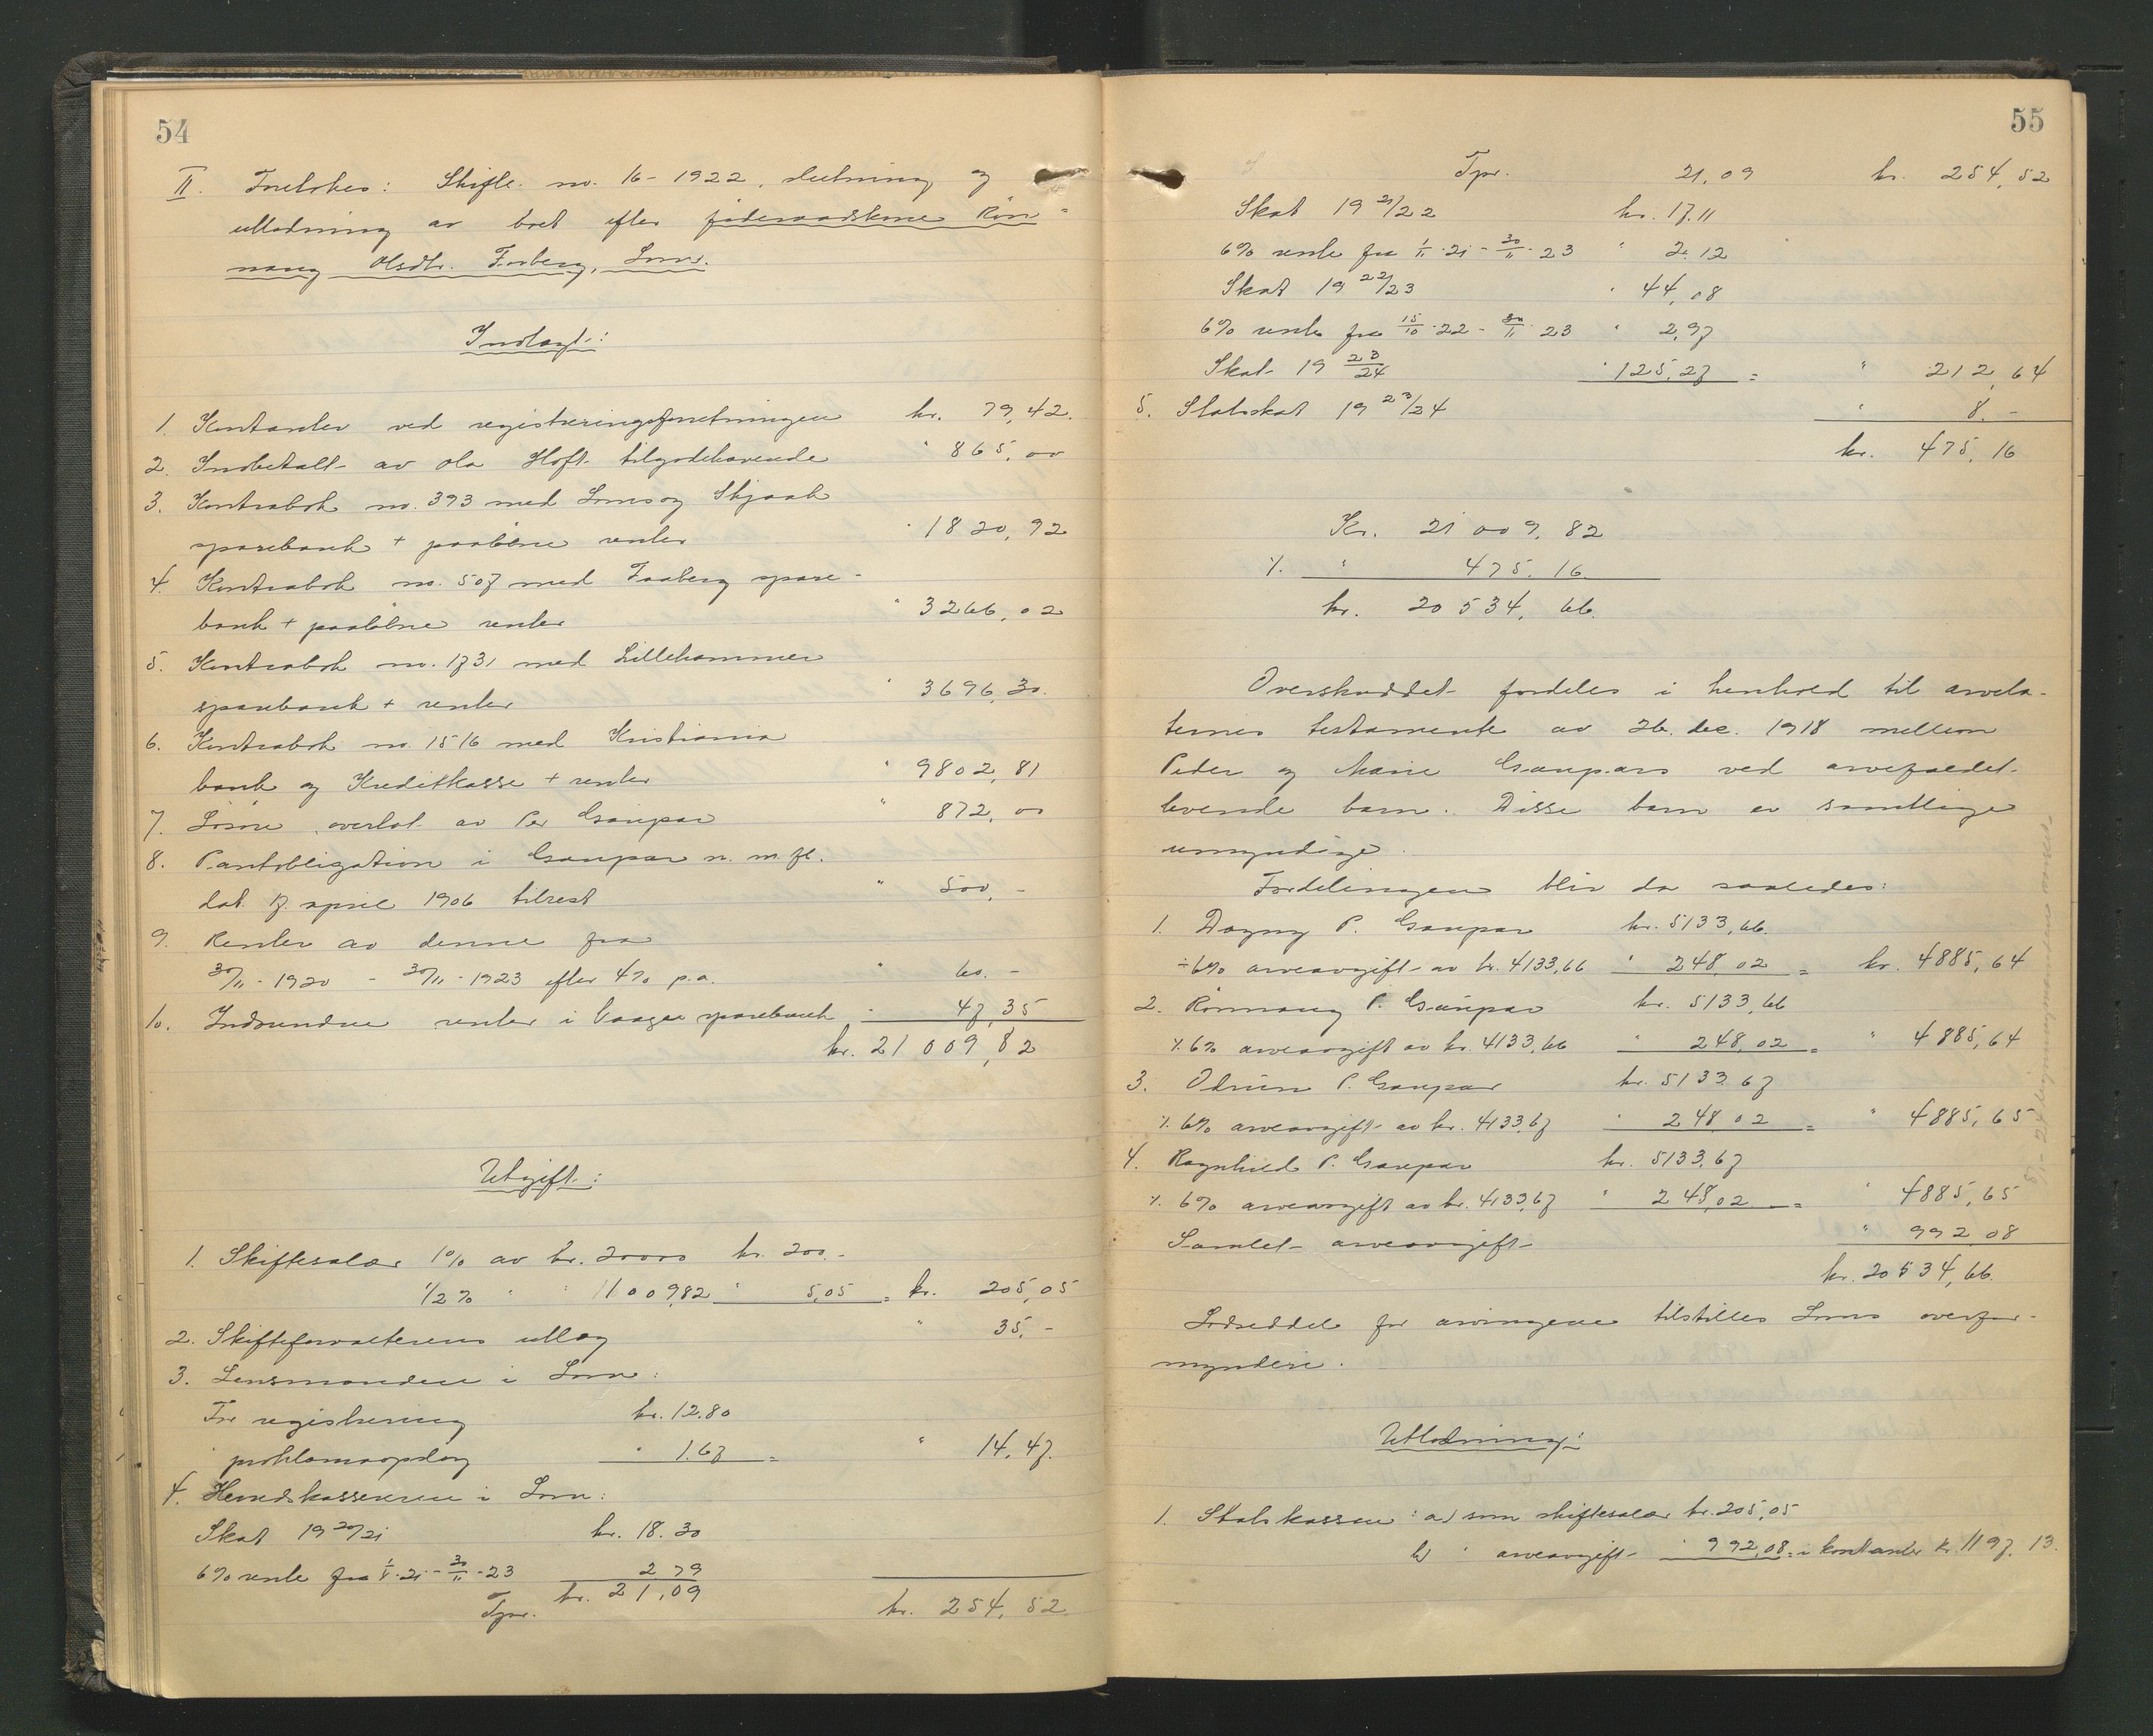 54
II. Foretokes: Skifte no. 16 - 1922, slutning og
utlodning av boet efter føderaadskone Røn=
naug Olsdtr. Forberg, Lom.
Indtægt:
1. Kontanter ved registreringsforretningen kr. 79,42.
2. Indbetalt av Ola Hoft tilgodehavende " 865,00
3. Kontrabok no. 393 med Lom og Skjaak
sparebank + paaløpne renter " 1820,92
4. Kontrabok no. 507 med Faaberg spare-
bank + paaløpne renter " 3266,02
5. Kontrabok no. 1731 med Lillehammer
sparebank + renter " 3696,30.
6. Kontrabok no. 1516 med Kristiania
bank og Kreditkasse + renter " 9802,81
7. Løsøre overlat av Per Gaupar " 872,00
8. Pantobligation i Gaupar n. m. fl.
dat. 17. april 1906 tilrest " 500,-
9. Renter av denne fra
30/11 - 1920 - 30/11 - 1923 efter 4% p.a. " 60.-
10. Indvundne renter i Vaage sparebank " 47,35
kr. 21 009,82
Utgift:
1. Skiftesalær 1% av kr. 20000 kr. 200.-
1/2 % " " 1009,82 " 5,05 = kr. 205,05
2. Skifteforvalterens utlæg " 35,-
3. Lensmanden i Lom:
For registrering kr. 12.80
" proklamaopslag " 1.67 = " 14,47.
4. Herredskassereren i Lom:
Skat 19 20/21 kr. 18.30
6% rente fra 1/5 21 - 30/11 - 23 2 79
Tpr. kr. 21,09 kr. 254,52
55
Tpr. 21,09 kr. 254,52
Skat 19 21/22 kr. 17.11
6% rente fra 1/11 21 - 30/11 23 " 2.12
Skat 19 22/23 " 44,08
6% rente fra 15/10 22 - 30/11 23 " 2,97
Skat 19 23/24 " 125,27 = " 212,64
5. Statsskat 19 23/24 " 8.-
kr. 475,16
Kr. 21 009,82
÷ " 475.16
kr. 20 534,66.
Overskuddet fordeles i henhold til arvela-
ternes testamente av 26. dec. 1918 mellem
Peder og Marie Gaupars ved arvefaldet
levende barn. Disse barn er samtlige
umyndige.
Fordelingen blir da saaledes:
1. Dagny P. Gaupar kr. 5133,66.
÷ 6% arveavgift av kr. 4133,66 " 248,02 = kr. 4885,64
2. Rønnaug P. Gaupar kr. 5133,66
÷ 6% arveavgift av kr. 4133,66 " 248,02 = " 4885,64
3. Odrun P. Gaupar kr. 5133.67
÷ 6% arveavgift av kr. 4133,67 " 248,02 = " 4885,65
4. Ragnhild P. Gaupar kr. 5133,67
÷ 6% arveavgift av kr. 4133,67 " 248,02 = " 4885,65
Samlet arveavgift " 992,08
kr. 20 534,66.
Lodseddel for arvingene tilstilles Lom overfor-
mynderi.
Utlodning:
1. Statskassen: a) som skiftesalær kr. 205,05
b) " arveavgift " 992,08 = i kontanter kr. 1197,13.